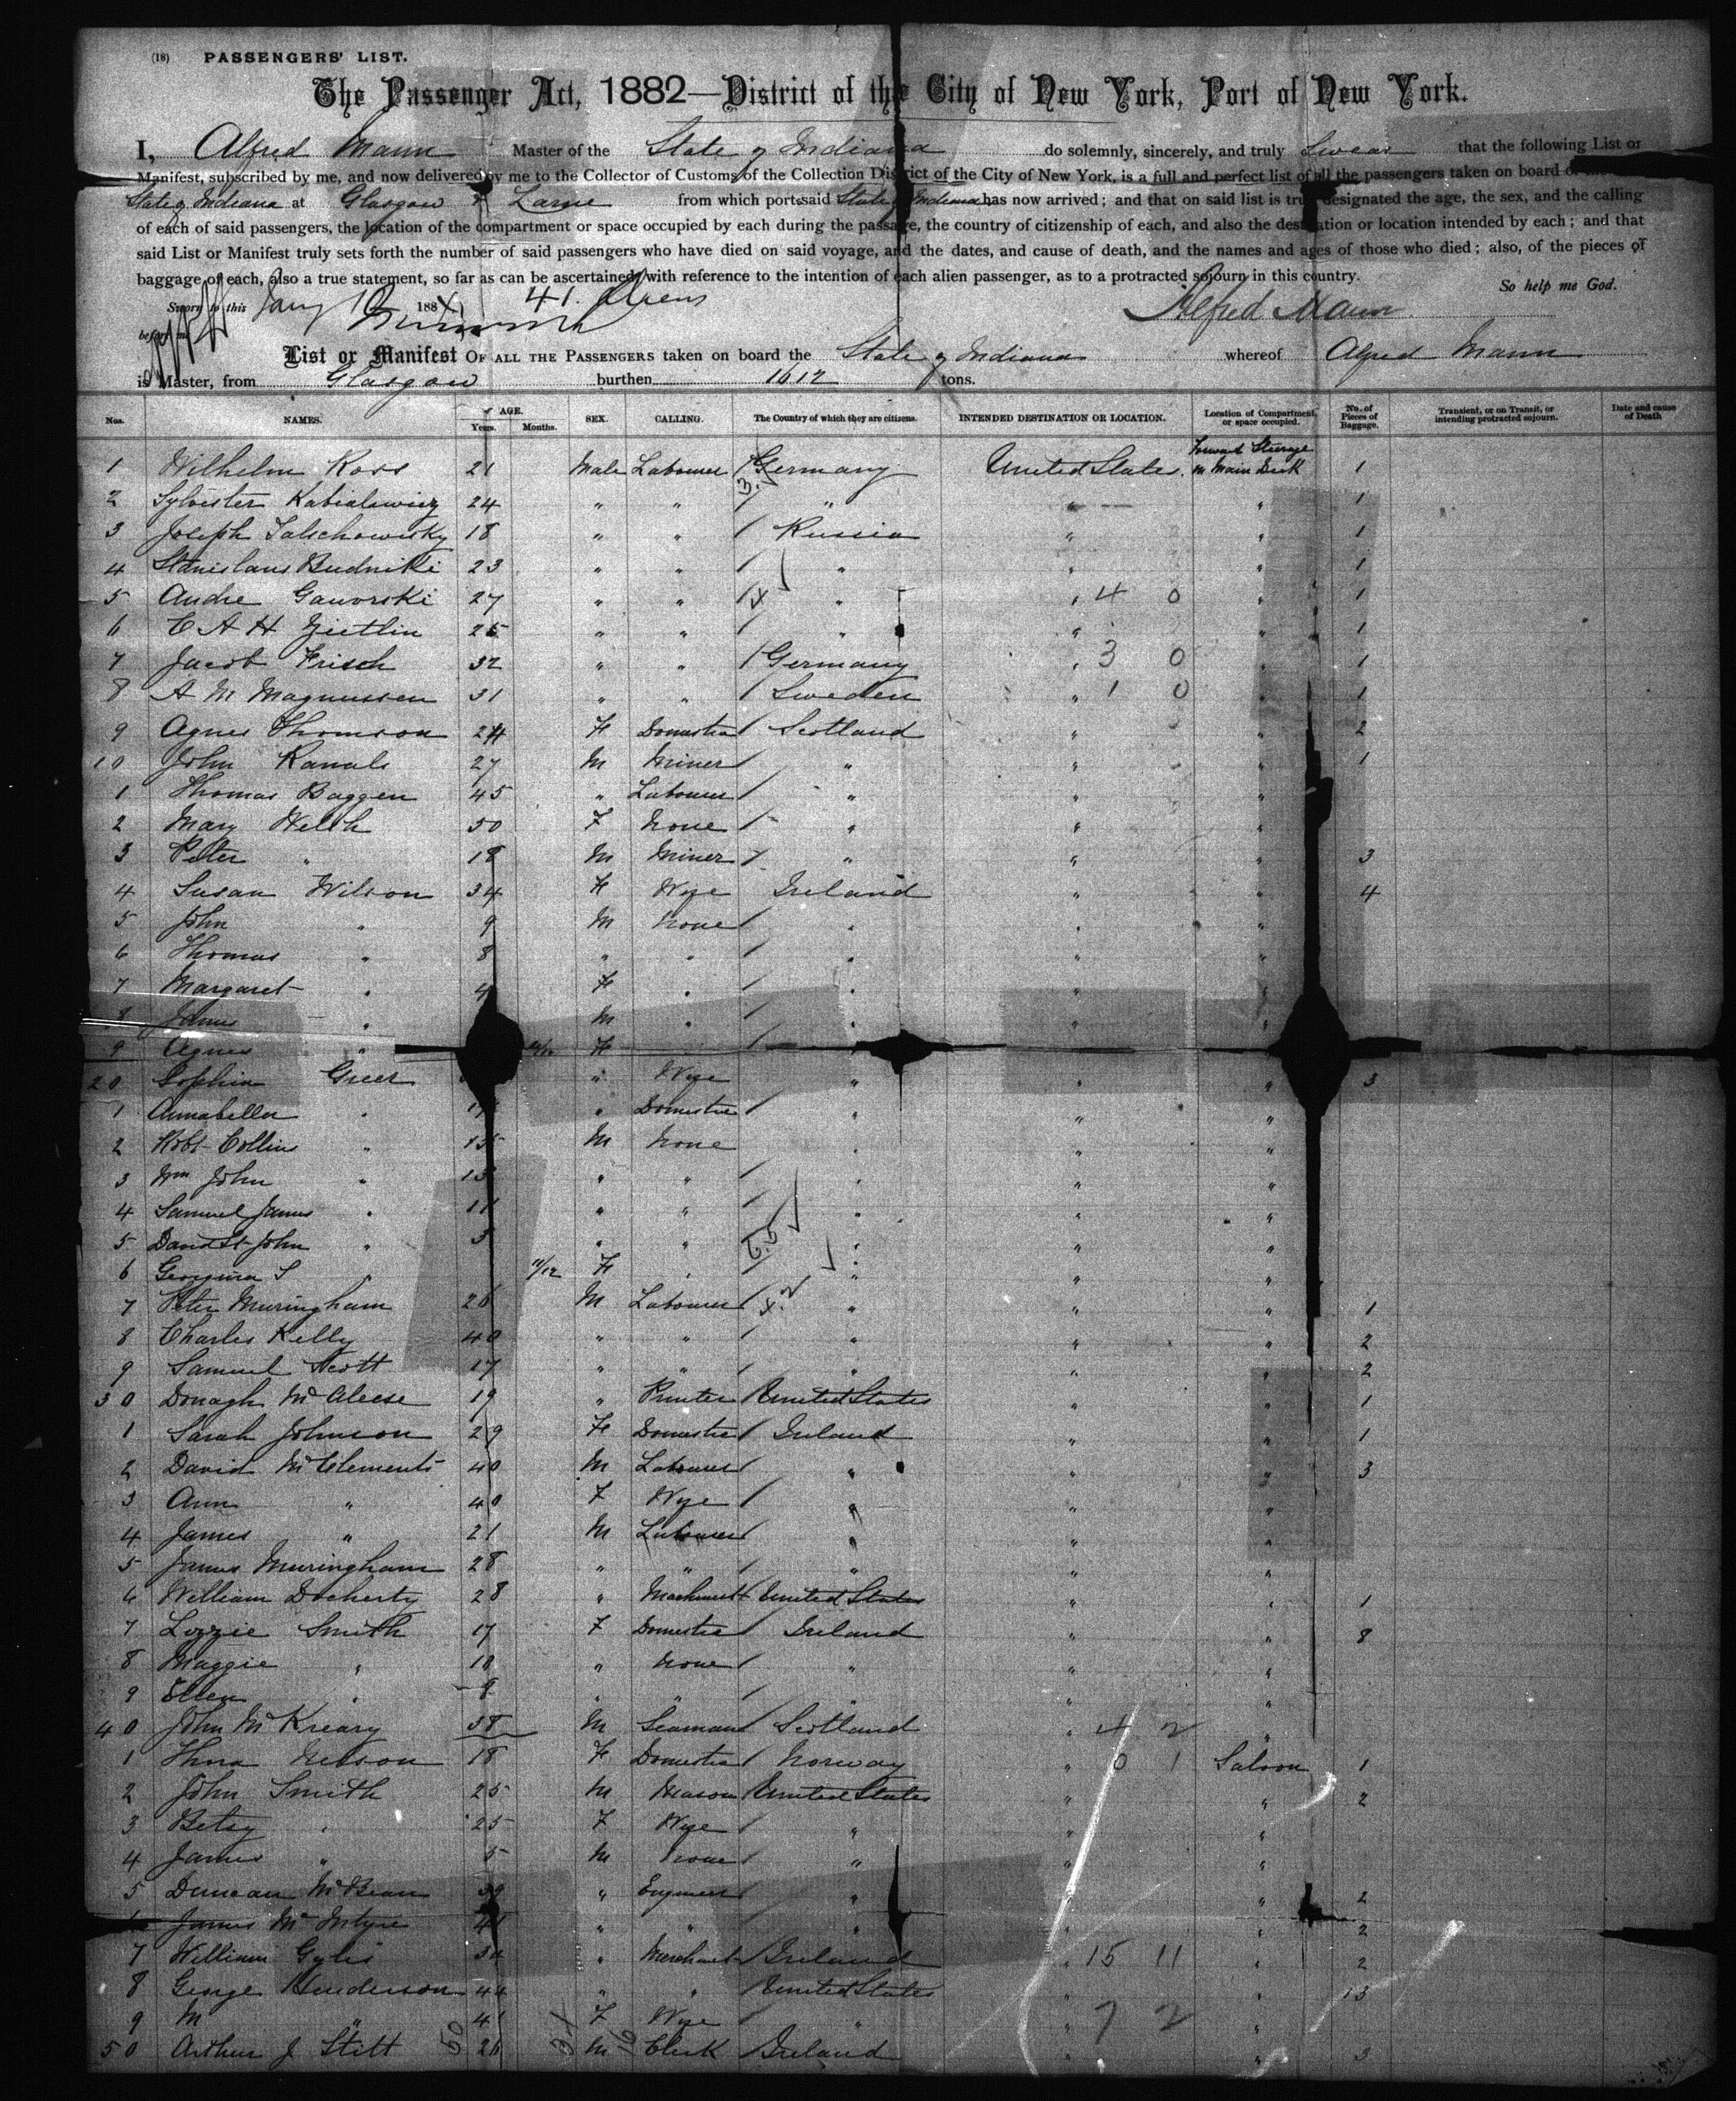 (18) PASSENGERS' LIST.
The Passenger Act, 1882—District of the City of New York, Port of New York.
I, Alfred Mann Master of the State of Indiana do solemnly, sincerely, and truly Swear that the following List or
Manifest, subscribed by me, and now delivered by me to the Collector of Customs of the Collection District of the City of New York, is a full and perfect list of all the passengers taken on board of
State of Indiana at Glasgow & Larne from which port said State of Indiana has now arrived; and that on said list is truly designated the age, the sex, and the calling
of each of said passengers, the location of the compartment or space occupied by each during the passage, the country of citizenship of each, and also the destination or location intended by each; and that
said List or Manifest truly sets forth the number of said passengers who have died on said voyage, and the dates, and cause of death, and the names and ages of those who died; also, of the pieces of
baggage of each, also a true statement, so far as can be ascertained, with reference to the intention of each alien passenger, as to a protracted sojourn in this country. So help me God.
Sworn to this Jany 10 188 Alfred Mann
before me
List or Manifest OF ALL THE PASSENGERS taken on board the State of Indiana whereof Alfred Mann
is Master, from Glasgow burthen 1612 tons.
Nos. NAMES. AGE. Years. Months. SEX. CALLING. The Country of which they are citizens. INTENDED DESTINATION OR LOCATION. Location of Compartment or space occupied. No. of Pieces of Baggage. Transient, or on Transit, or intending protracted sojourn. Date and cause of Death
1 Wilhelm Koss 21 Male Labourer Germany United States Forward Steerage in Main Deck 1
2 Sylvester 24 " " " " " 1
3 Joseph 18 " " Russia " " 1
4 Stanislaus Budnitki 23 " " " " " 1
5 Andre Gavorski 27 " " " " 4 0 " 1
6 C A H Zietlin 25 " " " " " 1
7 Jacob Frisch 32 " " Germany " 3 0 " 1
8 A M Magnussen 31 " " Sweden " 1 0 " 1
9 Agnes Thomson 24 F Domestic Scotland " " 2
10 John Kanals 27 M Miner " " " 1
1 Thomas Baggen 45 " Labourer " " "
2 Mary Welsh 50 F None " " "
3 Peter " 18 M Miner " " " 3
4 Susan Wilson 34 F Wife Ireland " " 4
5 John " 9 M None " " "
6 Thomas " 8 " " " " "
7 Margaret " 4 F " " " "
8 James " M " " " "
9 Agnes " F " "
20 Sophia Greer " Wife " " " 3
1 Annabella " " Domestic " " "
2 Robt Collins " 15 M None " " "
3 Wm John " 13 " " " " "
4 Samuel James " 11 " " " " "
5 David St John " 3 " " " " "
6 Georgina S " 11/12 F " " " "
7 Peter Muringham 26 M Labourer " " " 1
8 Charles Kelly 40 " " " " " 2
9 Samuel Scott 17 " " " " " 2
30 Donagh McAleese 19 " Printer United States " " 1
1 Sarah Johnson 29 F Domestic Ireland " " 1
2 David McClements 40 M Labourer " " " 3
3 Ann " 40 F Wife " " "
4 James " 21 M Labourer " " "
5 James Muringham 28 " " " " "
6 William Docherty 28 " Machinist United States " " 1
7 Lizzie Smith 17 F Domestic Ireland " " 8
8 Maggie " " None " " "
9 Ellen " 8 " " " " "
40 John McKreary 38 M Seaman Scotland " 4 2 "
1 Nelson 18 F Domestic Norway " 0 1 Saloon 1
2 John Smith 25 M Mason United States " " 2
3 Betsy " 25 F Wife " " "
4 James " 5 M None " " "
5 Duncan McBean 39 " Engineer " " " 2
6 James McIntyre 41 " " " " " 2
7 William " Merchant Ireland " 15 11 " 2
8 George Henderson 44 " " United States " " 13
9 M " 41 F Wife " " 7 2 "
50 Arthur J Stitt 26 M Clerk Ireland " " 3